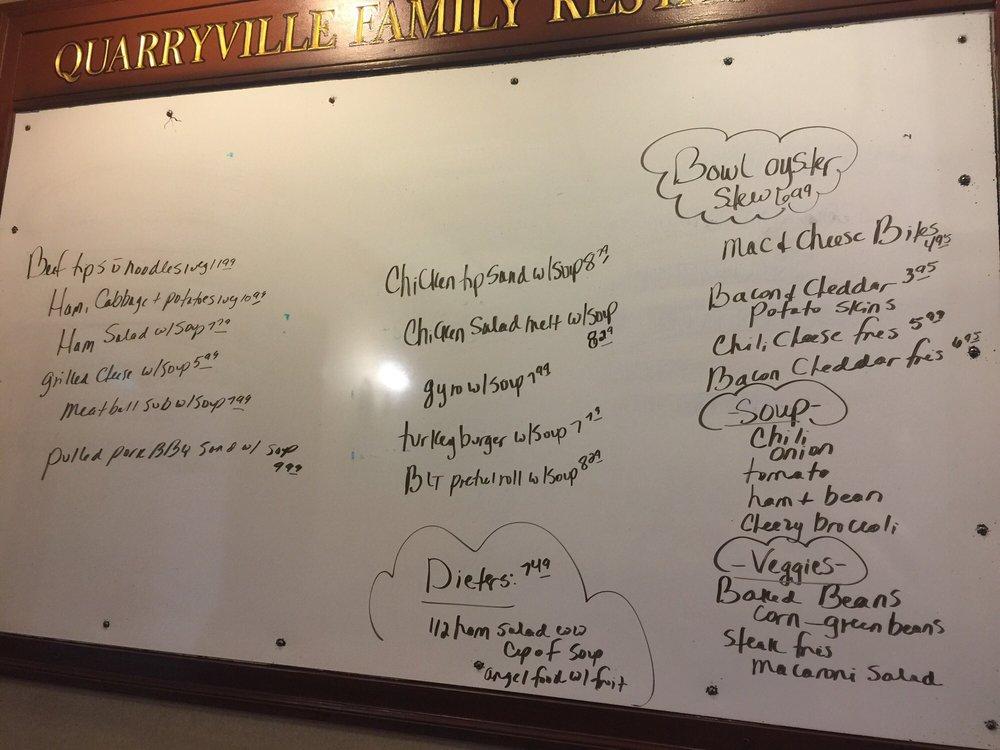 QUARRYVILLE FAMILY
Beef tips c̄ noodles 1 veg 11 99
Ham, Cabbage + potatoes 1 veg 10 99
Ham Salad w/soup
grilled cheese w/soup 5 99
meatball sub w/soup 7 99
pulled pork BBQ Sand w/ soup
9 99
Chicken tip Sand w/soup
Chicken Salad melt w/soup
8 29
gyro w/soup 7 99
turkey burger w/soup
BLT pretzel roll w/soup 8 29
Dieters: 7 49
1/2 ham salad
Cup of Soup
angel food w/ fruit
Bowl oyster
Stew
Mac & Cheese Bites
4 95
Bacon & Cheddar 3 95
potato skins
Chili Cheese fries 5 99
Bacon Cheddar fries
-Soup-
Chili
onion
tomato
ham + bean
Cheezy broccoli
-Veggies-
Baked Beans
corn - green beans
Steak fries
macaroni Salad